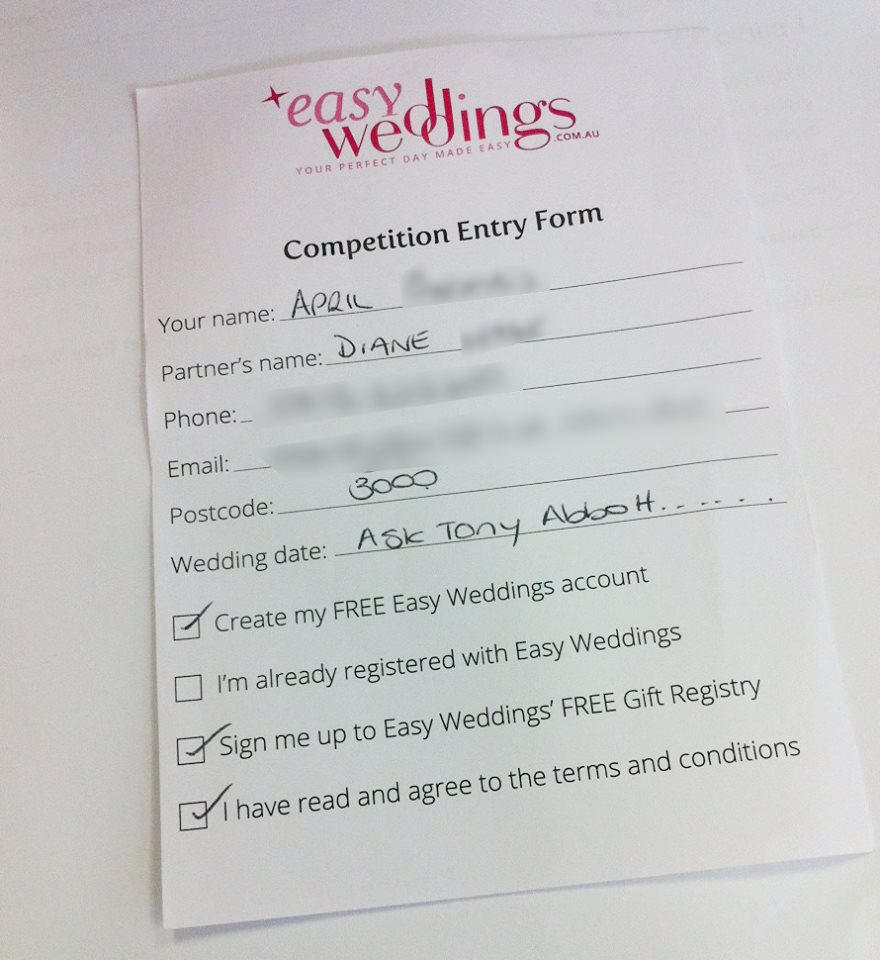 easy
weddings
.COM.AU
YOUR PERFECT DAY MADE EASY
Competition Entry Form
Your name: APRIL
Partner's name: DIANE
Phone:
Email:
Postcode: 3000
Wedding date: ASK TONY Abbott.......
Create my FREE Easy Weddings account
I'm already registered with Easy Weddings
Sign me up to Easy Weddings' FREE Gift Registry
I have read and agree to the terms and conditions